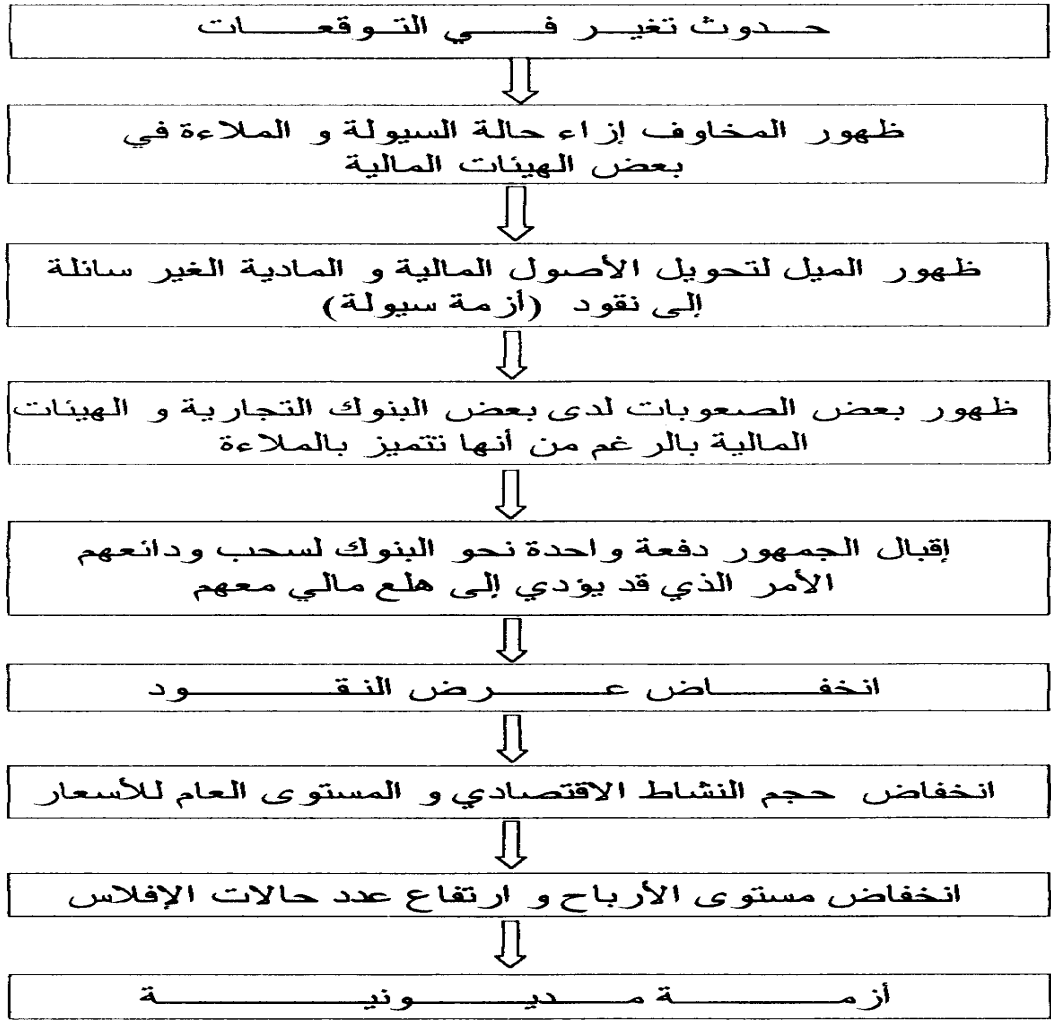 حدوث تغير في التوقعات
ظهور المخاوف إزاء حالة السيولة و الملاءة في
بعض الهيئات المالية
ظهور الميل لتحويل الأصول المالية و المادية الغير سائلة
إلى نقود (أزمة سيولة)
ظهور بعض الصعوبات لدى بعض البنوك التجارية و الهيئات
المالية بالرغم من أنها تتميز بالملاءة
إقبال الجمهور دفعة واحدة نحو البنوك لسحب ودائعهم
الأمر الذي قد يؤدي إلى هلع مالي معهم
انخفاض عرض النقود
انخفاض حجم النشاط الاقتصادي و المستوى العام للأسعار
انخفاض مستوى الأرباح و ارتفاع عدد حالات الإفلاس
أزمة مديونية